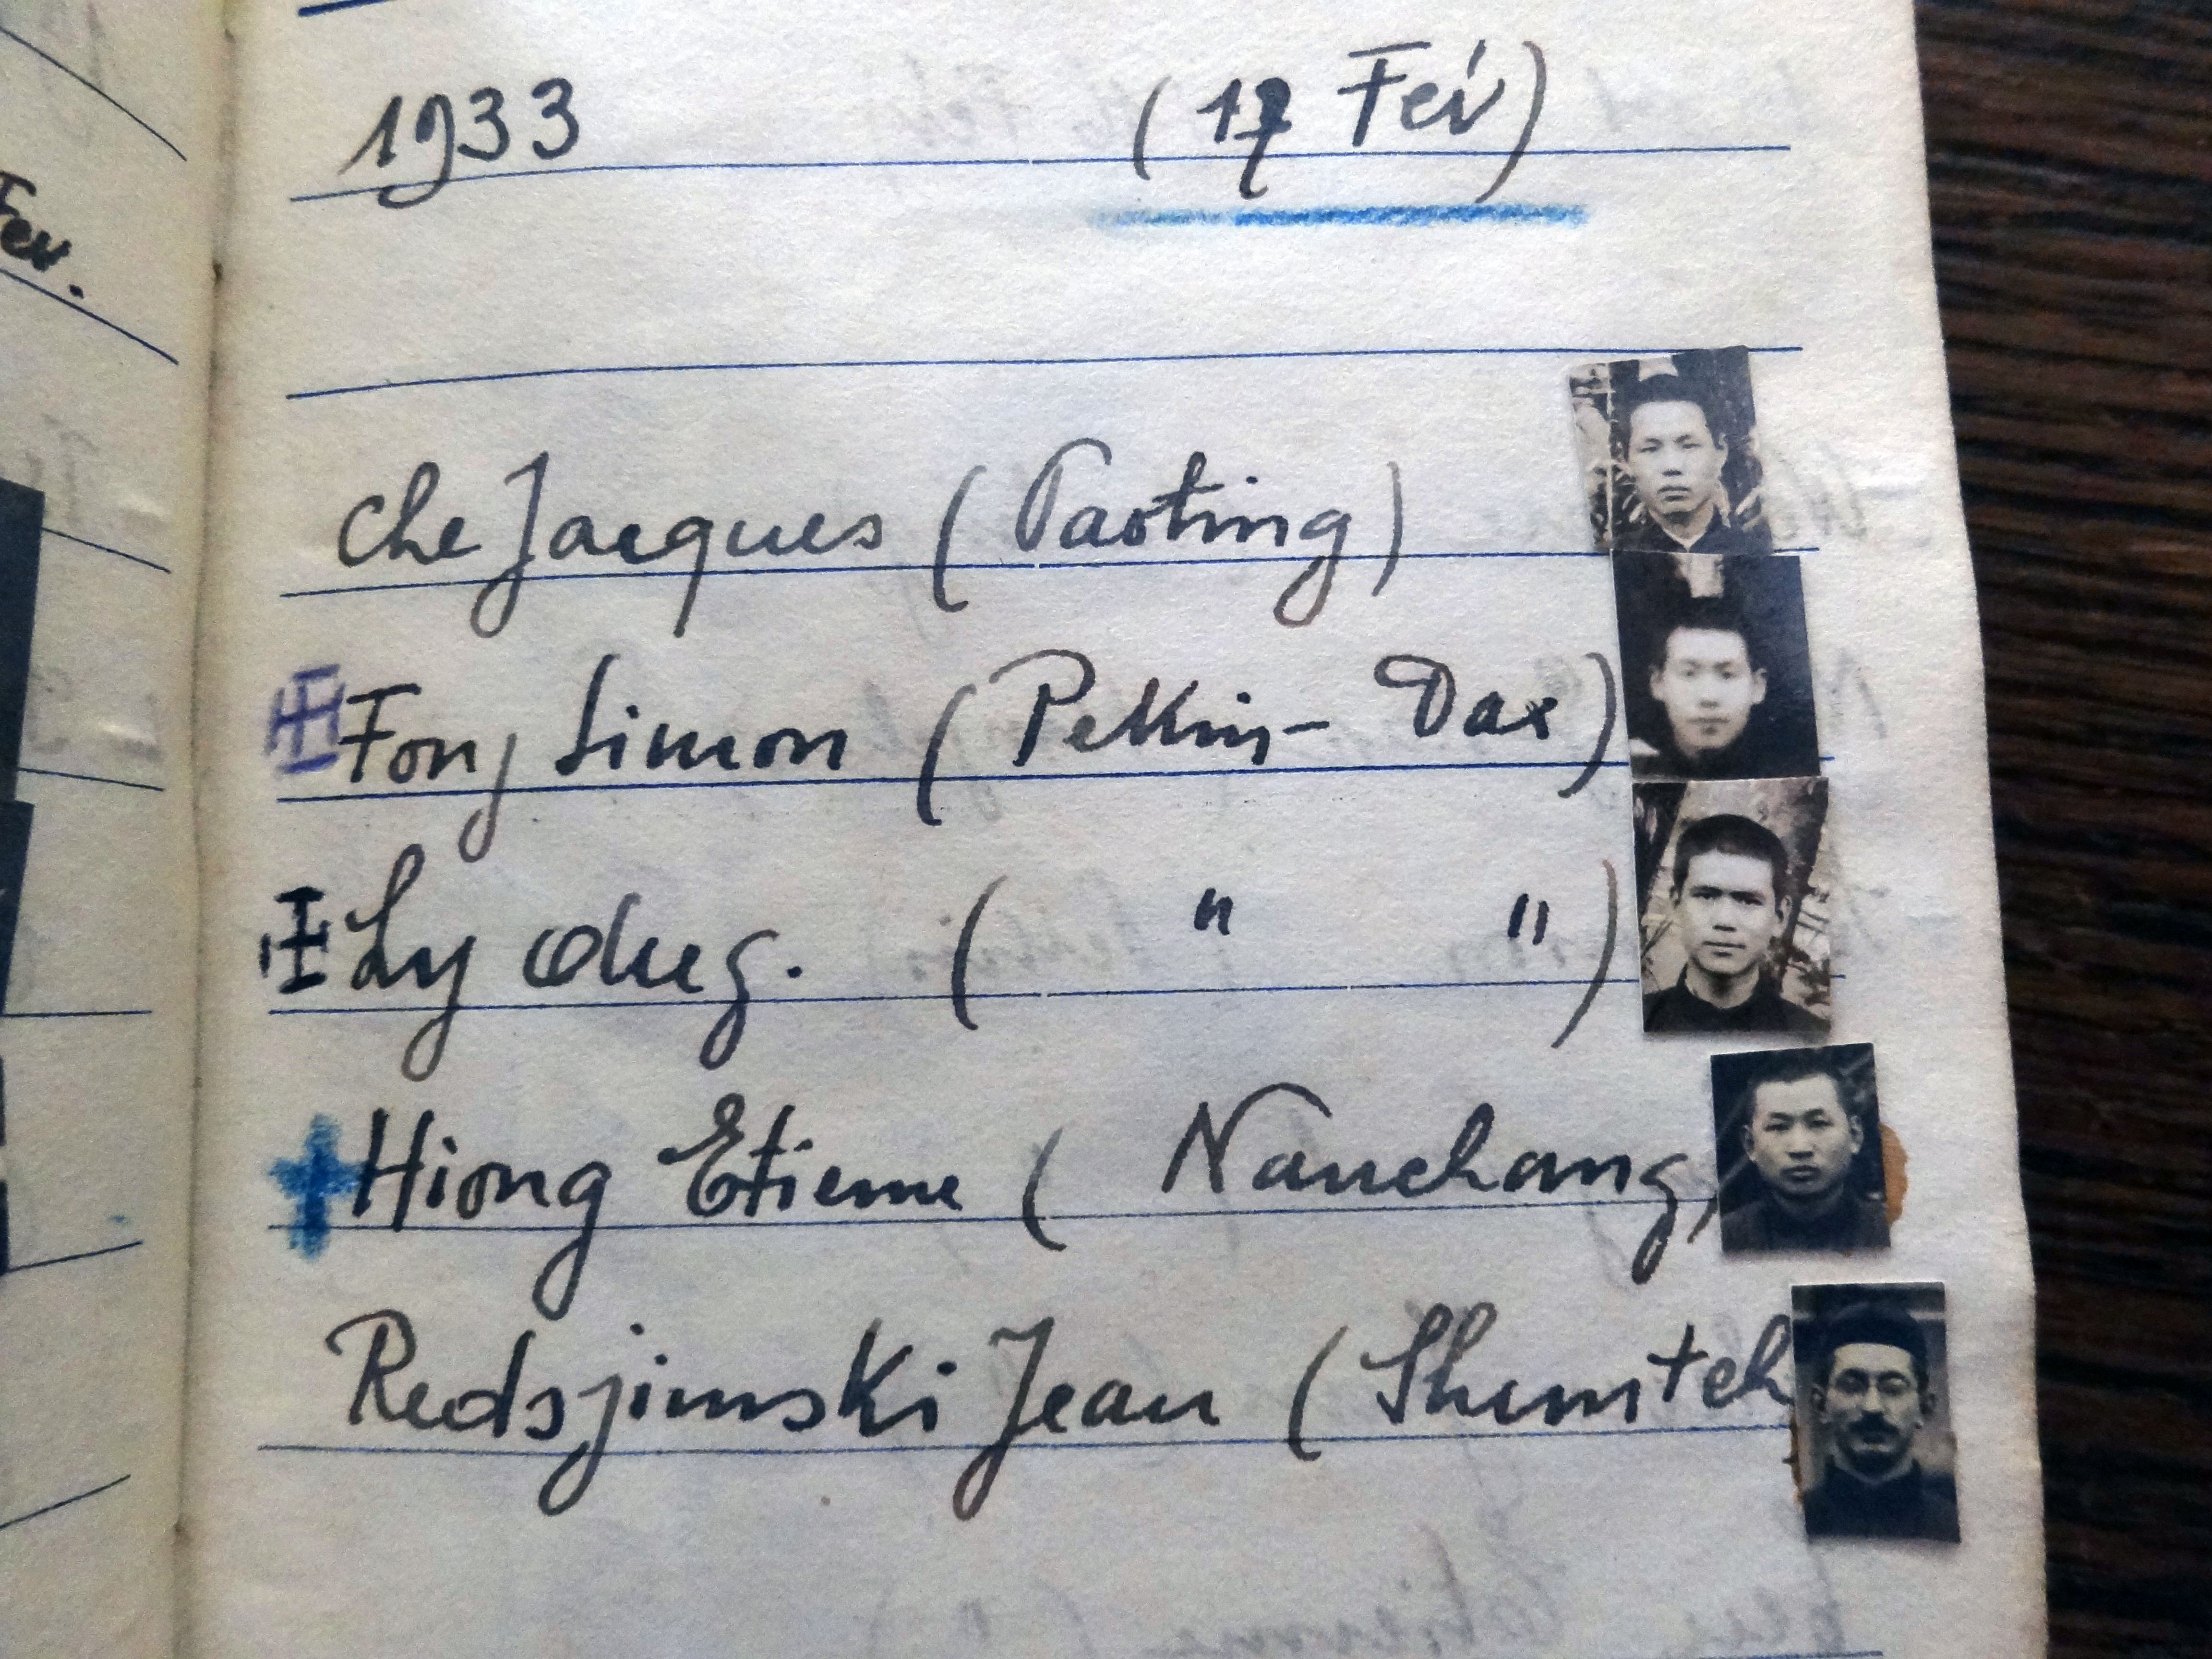 Fev.
1933 (17 Fév)
Che Jacques (Paoting)
Fong Simon (Pekin - Dax)
Ly Aug. ( " " )
Hiong Etienne ( Nanchang)
Redsjimski Jean ( Shunteh